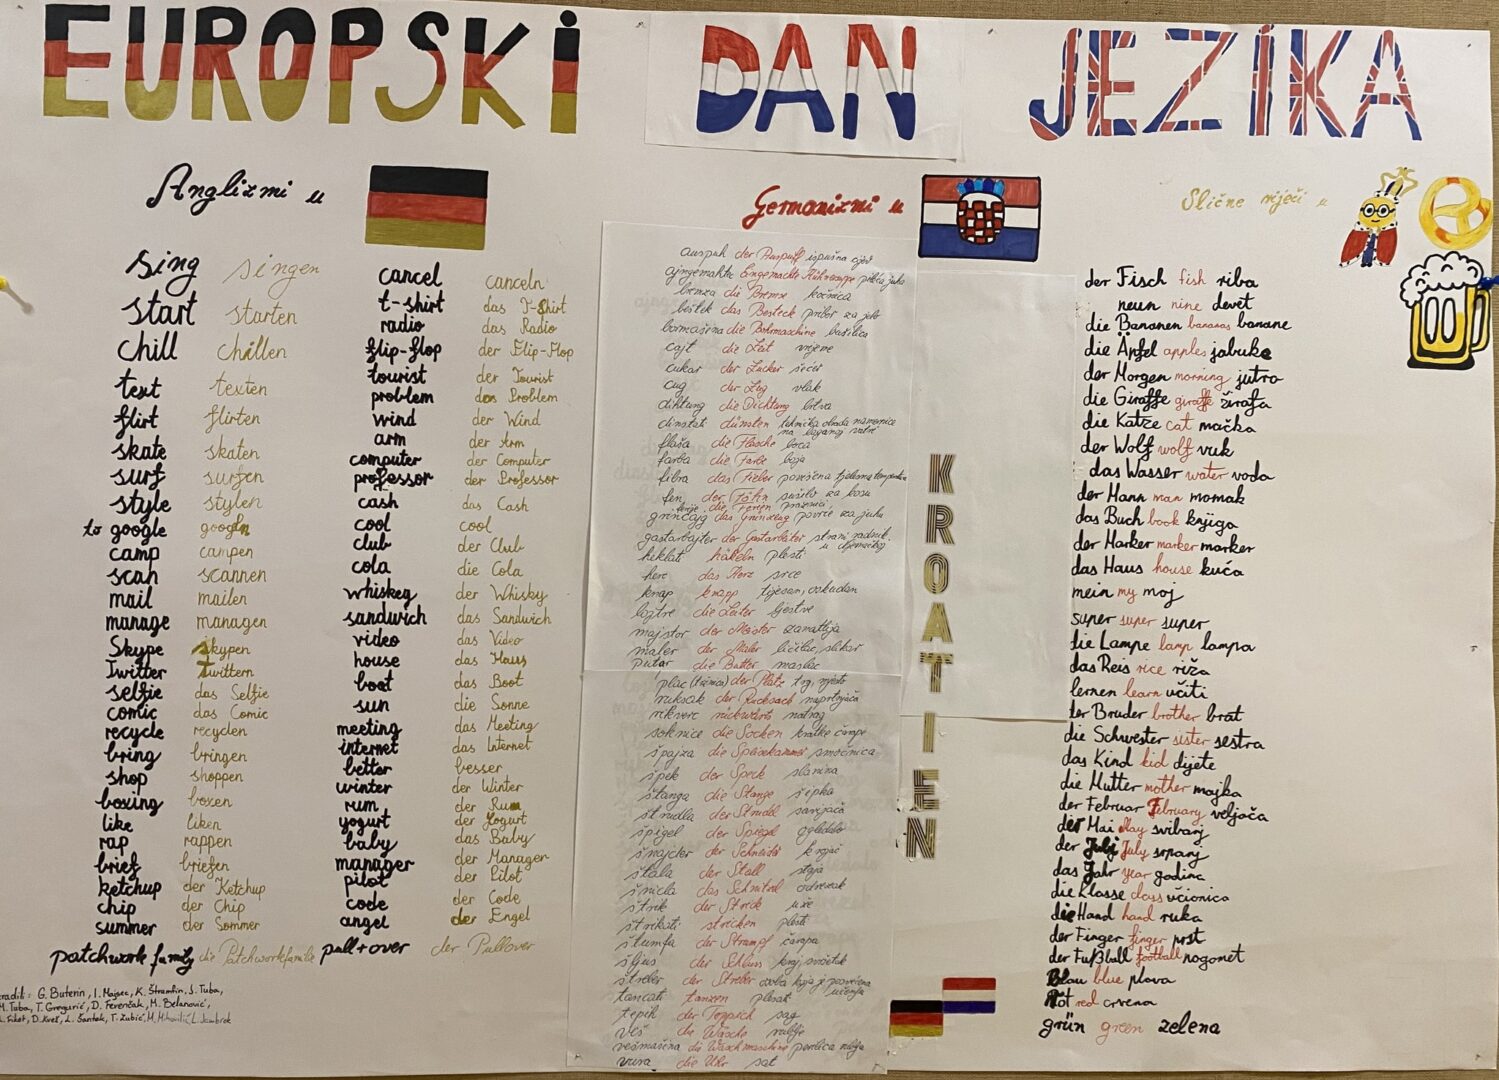 EUROPSKI DAN JEZIKA
Anglizmi u
sing singen
start starten
chill chillen
text texten
flirt flirten
skate skaten
surf surfen
style stylen
to google googeln
camp campen
scan scannen
mail mailen
manage managen
Skype Skypen
Twitter Twittern
selfie das Selfie
comic das Comic
recycle recyclen
bring bringen
shop shoppen
boxing boxen
like liken
rap rappen
brief briefen
ketchup der Ketchup
chip der Chip
summer der Sommer
patchwork family die Patchworkfamilie
cancel canceln
t-shirt das T-Shirt
radio das Radio
flip-flop der Flip-Flop
tourist der Tourist
problem das Problem
wind der Wind
arm der Arm
computer der Computer
professor der Professor
cash das Cash
cool cool
club der Club
cola die Cola
whiskey der Whisky
sandwich das Sandwich
video das Video
house das Haus
boot das Boot
sun die Sonne
meeting das Meeting
internet das Internet
better besser
winter der Winter
rum der Rum
yogurt der Yogurt
baby das Baby
manager der Manager
pilot der Pilot
code der Code
angel der Engel
pull+over der Pullover
G. Buterin, K. Štramlin, J. Tuba,
M. Tuba, T. Gregurić, D. Ferenčak, M. Belanović,
L. Šantek, T. Zubić,
Germanizmi u
auspuh der Auspuff ispušna cijev
ajngemahte Eingemachte pileća juha
bremza die Bremse kočnica
beštek das Besteck pribor za jelo
bormašina die Bohrmaschine bušilica
cajt die Zeit vrijeme
cukar der Zucker šećer
cug der Zug vlak
dihtung die Dichtung brtva
dinstati dünsten
na laganoj vatri
flaša die Flasche boca
farba die Farbe boja
fibra das Fieber povišena tjelesna temperatura
fen der Föhn sušilo za kosu
ferije die Ferien praznici
grincajg das Grünzeug povrće za juhu
gastarbajter der Gastarbeiter strani radnik
u Njemačkoj
heklati häkeln plesti
herc das Herz srce
knap knapp tijesan, oskudan
lojtre die Leiter ljestve
majstor der Meister zanatlija
maler der Maler ličilac, slikar
putar die Butter maslac
plac (tržnica) der Platz trg, mjesto
ruksak der Rucksack naprtnjača
rikverc rückwärts natrag
soknice die Socken kratke čarape
špajza die Speisekammer smočnica
špek der Speck slanina
štanga die Stange šipka
štrudla der Strudel savijača
špigel der Spiegel ogledalo
šnajder der Schneider krojač
štala der Stall staja
šnicla das Schnitzel odrezak
štrik der Strick uže
štrikati stricken plesti
štumfa der Strumpf čarapa
šljus der Schluss kraj, svršetak
štreber der Streber
tancati tanzen plesati
tepih der Teppich sag
veš die Wäsche rublje
vešmašina die Waschmaschine perilica rublja
vura die Uhr sat
KROATIEN
Slične riječi u
der Fisch fish riba
neun nine devet
die Bananen bananas banane
die Äpfel apples jabuke
der Morgen morning jutro
die Giraffe giraffe žirafa
die Katze cat mačka
der Wolf wolf vuk
das Wasser water voda
der Mann man momak
das Buch book knjiga
der Marker marker marker
das Haus house kuća
mein my moj
super super super
die Lampe lamp lampa
das Reis rice riža
lernen learn učiti
der Bruder brother brat
die Schwester sister sestra
das Kind kid dijete
die Mutter mother majka
der Februar February veljača
der Mai May svibanj
der Juli July srpanj
das Jahr year godina
die Klasse class učionica
die Hand hand ruka
der Finger finger prst
der Fußball football nogomet
Blau blue plava
Rot red crvena
grün green zelena